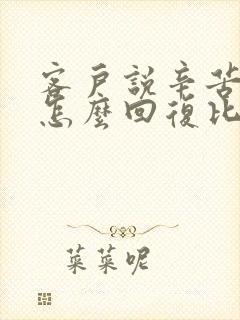 客戶說辛苦
怎麼回復比
菜菜呢